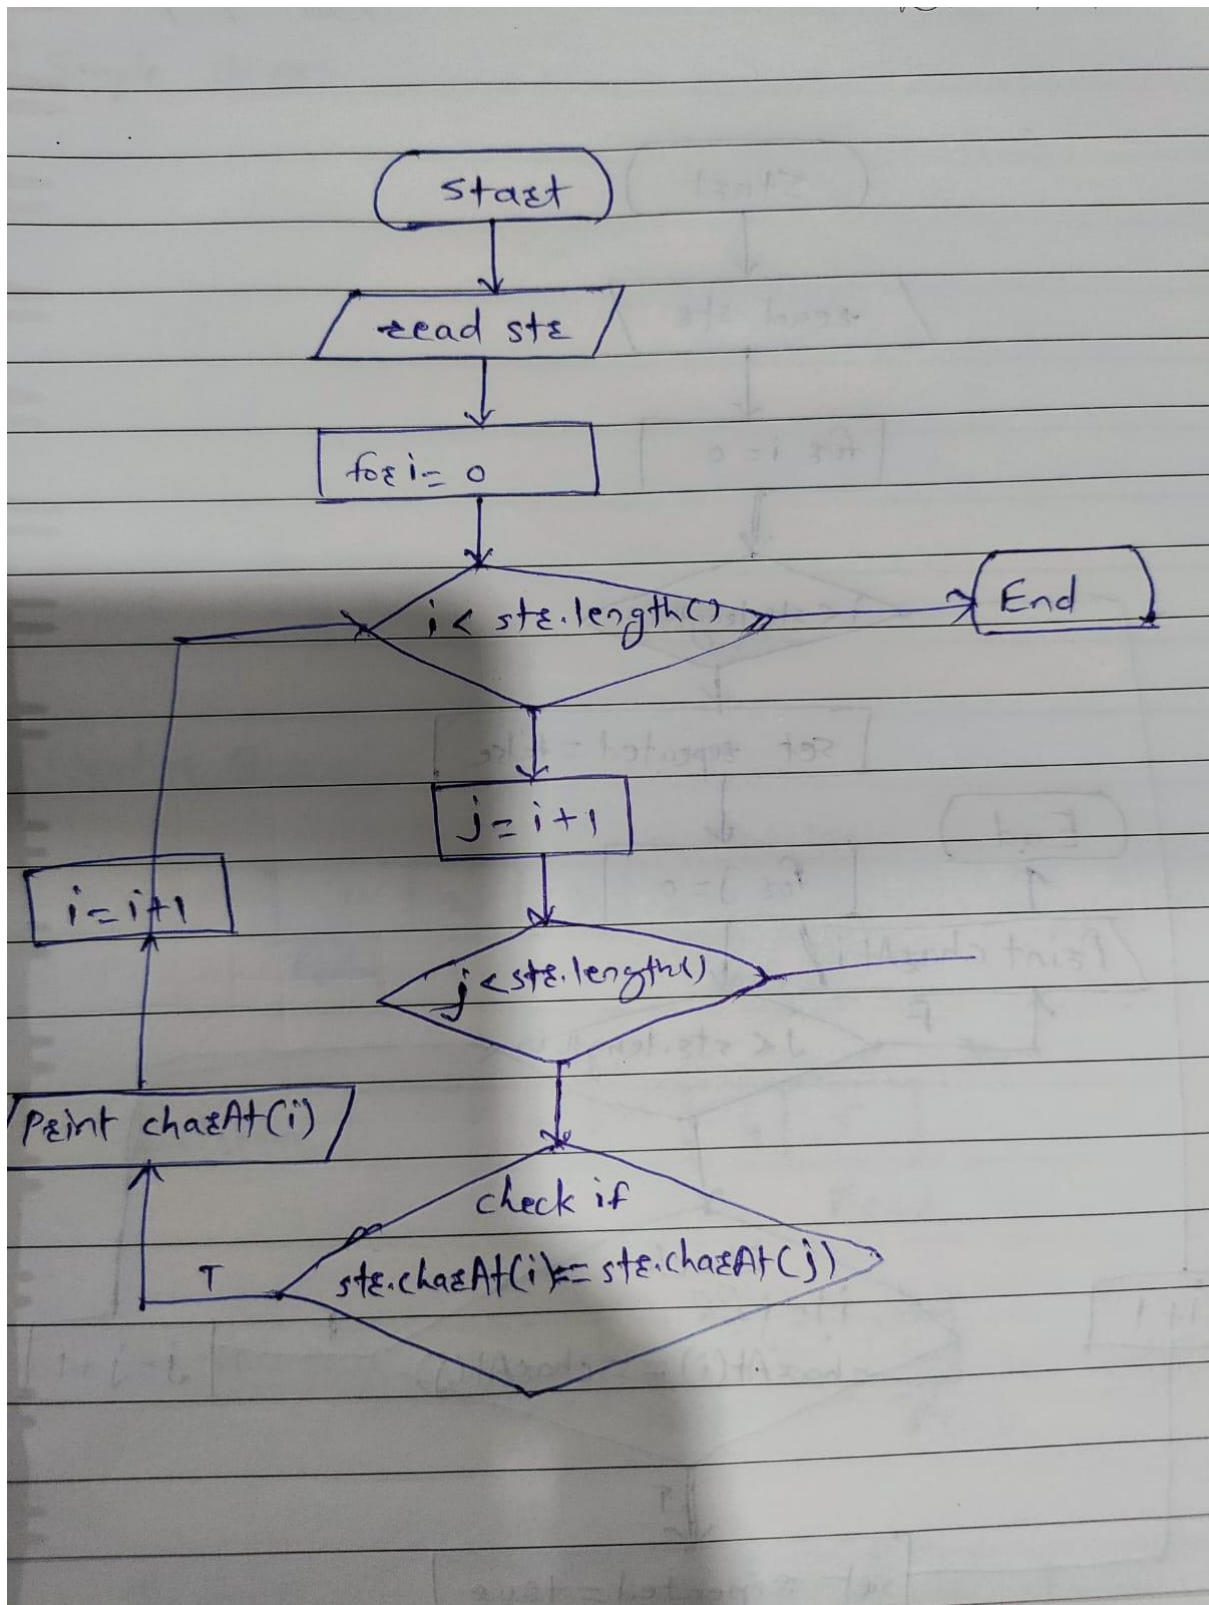 Start
read str
for i = 0
i < str.length()
End
j = i+1
i = i+1
j < str.length()
Print charAt(i)
check if
str.charAt(i) == str.charAt(j)
T